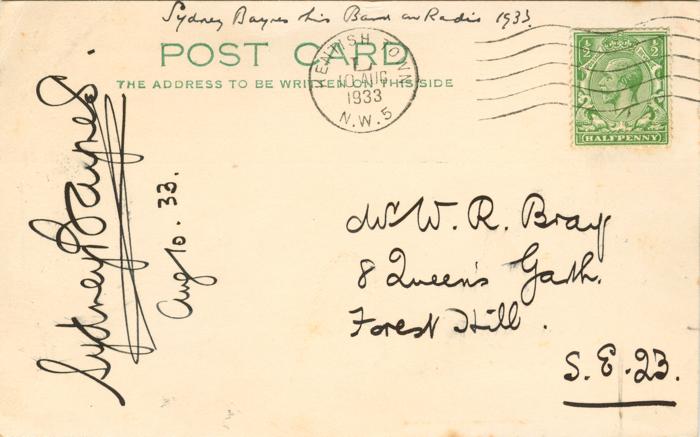 Sydney Baynes his Band on Radio 1933.
POST CARD
THE ADDRESS TO BE WRITTEN ON THIS SIDE
KENTISH TOWN
L
10 AUG
1933
N.W.5
½ ½
HALFPENNY
Sydney Baynes.
Aug 10. 33.
Mr W. R. Bray
8 Queen's Garth.
Forest Hill.
S.E.23.